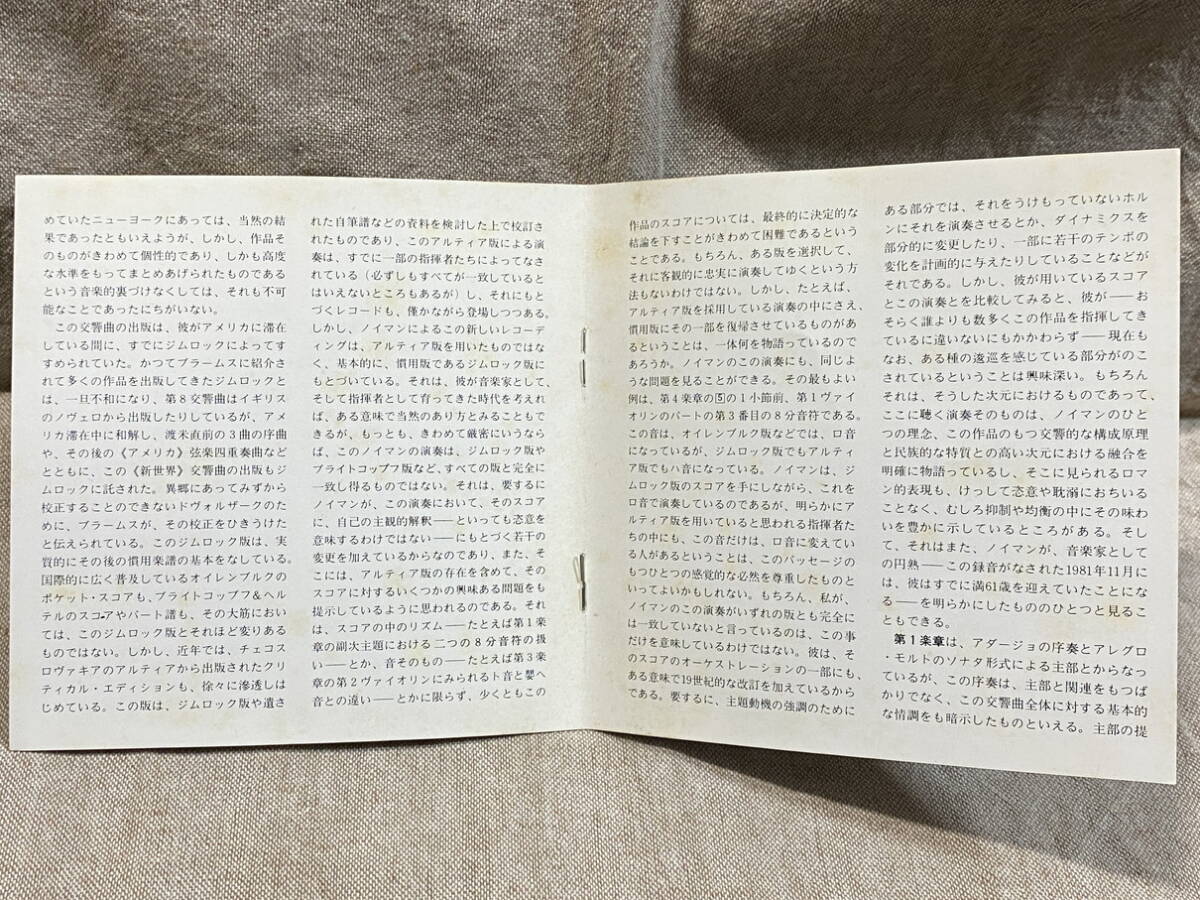 めていたニューヨークにあっては、当然の結
果であったともいえようが、しかし、作品そ
のものがきわめて個性的であり、しかも高度
な水準をもってまとめあげられたものである
という音楽的裏づけなくしては、それも不可
能なことであったにちがいない。
この交響曲の出版は、彼がアメリカに滞在
している間に、すでにジムロックによってす
すめられていた。かつてブラームスに紹介さ
れて多くの作品を出版してきたジムロックと
は、一旦不和になり、第8交響曲はイギリス
のノヴェロから出版したりしているが、アメ
リカ滞在中に和解し、渡米直前の3曲の序曲
や、その後の《アメリカ》弦楽四重奏曲など
とともに、この《新世界》交響曲の出版もジ
ムロックに託された。異郷にあってみずから
校正することのできないドヴォルザークのた
めに、ブラームスが、その校正をひきうけた
と伝えられている。このジムロック版は、実
質的にその後の慣用楽譜の基本をなしている。
国際的に広く普及しているオイレンブルクの
ポケット・スコアも、ブライトコップフ&ヘル
テルのスコアやパート譜も、その大筋におい
ては、このジムロック版とそれほど変りある
ものではない。しかし、近年では、チェコス
ロヴァキアのアルティアから出版されたクリ
ティカル・エディションも、徐々に滲透しは
じめている。この版は、ジムロック版や遺さ
れた自筆譜などの資料を検討した上で校訂さ
れたものであり、このアルティア版による演
奏は、すでに一部の指揮者たちによってなさ
れている（必ずしもすべてが一致していると
はいえないところもあるが）し、それにもと
づくレコードも、僅かながら登場しつつある。
しかし、ノイマンによるこの新しいレコーデ
ィングは、アルティア版を用いたものではな
く、基本的に、慣用版であるジムロック版に
もとづいている。それは、彼が音楽家として、
そして指揮者として育ってきた時代を考えれ
ば、ある意味で当然のあり方とみることもで
きるが、もっとも、きわめて厳密にいうなら
ば、このノイマンの演奏は、ジムロック版や
ブライトコップフ版など、すべての版と完全に
一致し得るものではない。それは、要するに
ノイマンが、この演奏において、そのスコア
に、自己の主観的解釈――といっても恣意を
意味するわけではない――にもとづく若干の
変更を加えているからなのであり、また、そ
こには、アルティア版の存在を含めて、その
スコアに対するいくつかの興味ある問題をも
提示しているように思われるのである。それ
は、スコアの中のリズム――たとえば第1楽
章の副次主題における二つの8分音符の扱
い――とか、音そのもの――たとえば第3楽
章の第2ヴァイオリンにみられるト音と嬰ヘ
音との違い――とかに限らず、少くともこの
作品のスコアについては、最終的に決定的な
結論を下すことがきわめて困難であるという
ことである。もちろん、ある版を選択して、
それに客観的に忠実に演奏してゆくという方
法もないわけではない。しかし、たとえば、
アルティア版を採用している演奏の中にさえ、
慣用版にその一部を復帰させているものがあ
るということは、一体何を物語っているので
あろうか。ノイマンのこの演奏にも、同じよ
うな問題を見ることができる。その最もよい
例は、第4楽章の5の1小節前、第1ヴァイ
オリンのパートの第3番目の8分音符である。
この音は、オイレンブルク版などでは、ロ音
になっているが、ジムロック版でもアルティ
ア版でもハ音になっている。ノイマンは、ジ
ムロック版のスコアを手にしながら、これを
ロ音で演奏しているのであるが、明らかにア
ルティア版を用いていると思われる指揮者た
ちの中にも、この音だけは、ロ音に変えてい
る人があるということは、このパッセージの
もつひとつの感覚的な必然を尊重したものと
いってよいかもしれない。もちろん、私が、
ノイマンのこの演奏がいずれの版とも完全に
は一致していないと言っているのは、この事
だけを意味しているわけではない。彼は、そ
のスコアのオーケストレーションの一部にも、
ある意味で19世紀的な改訂を加えているから
である。要するに、主題動機の強調のために
ある部分では、それをうけもっていないホル
ンにそれを演奏させるとか、ダイナミクスを
部分的に変更したり、一部に若干のテンポの
変化を計画的に与えたりしていることなどが
それである。しかし、彼が用いているスコア
とこの演奏とを比較してみると、彼が――お
そらく誰よりも数多くこの作品を指揮してき
ているに違いないにもかかわらず――現在も
なお、ある種の逡巡を感じている部分がのこ
されているということは興味深い。もちろん
それは、そうした次元におけるものであって、
ここに聴く演奏そのものは、ノイマンのひと
つの理念、この作品のもつ交響的な構成原理
と民族的な特質との高い次元における融合を
明確に物語っているし、そこに見られるロマ
ン的表現も、けっして恣意や耽溺におちいる
ことなく、むしろ抑制や均衡の中にその味わ
いを豊かに示しているところがある。そし
て、それはまた、ノイマンが、音楽家として
の円熟――この録音がなされた1981年11月に
は、彼はすでに満61歳を迎えていたことにな
る――を明らかにしたもののひとつと見るこ
ともできる。
第1楽章は、アダージョの序奏とアレグロ
・モルトのソナタ形式による主部とからなって
いるが、この序奏は、主部と関連をもつば
かりでなく、この交響曲全体に対する基本的
な情調をも暗示したものといえる。主部の提